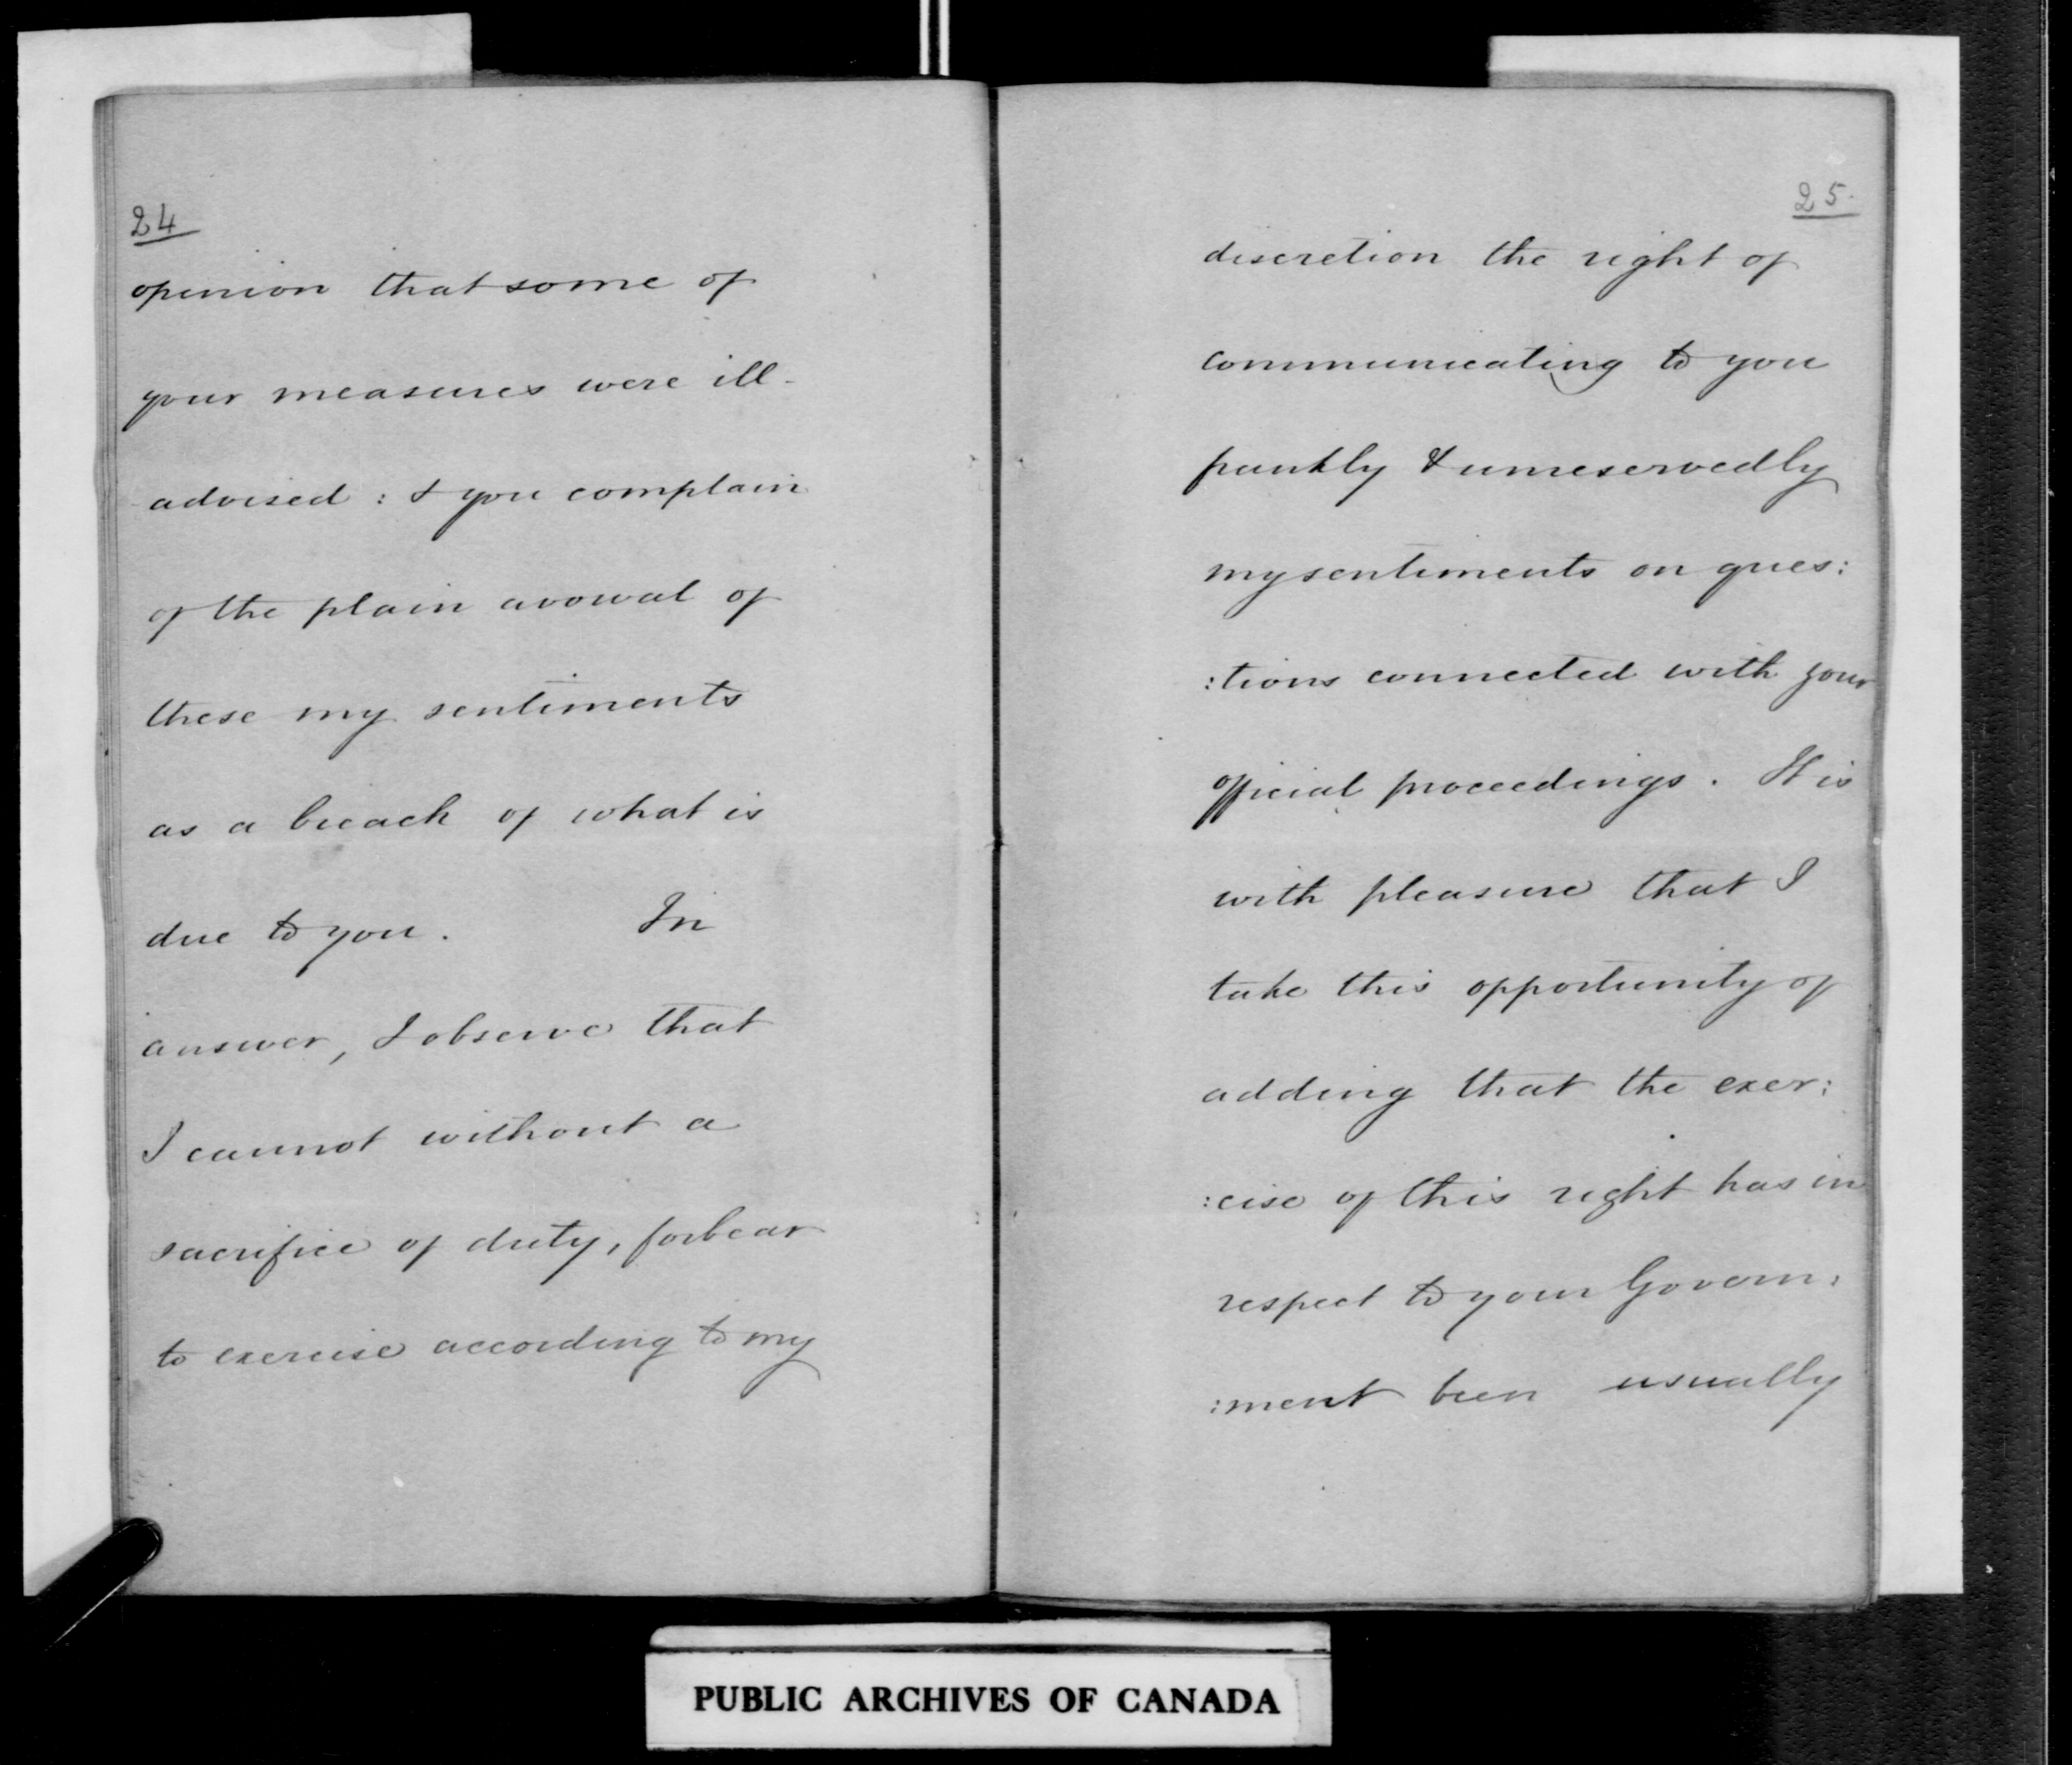 24
opinion that some of
your measures were ill-
advised : & you complain
of the plain avowal of
these my sentiments
as a breach of what is
due to you. In
answer, I observe that
I cannot without a
sacrifice of duty, forbear
to exercise according to my
25.
discretion the right of
communicating to you
frankly & unreservedly
my sentiments on ques:
:tions connected with your
official proceedings. It is
with pleasure that I
take this opportunity of
adding that the exer:
:cise of this right has in
respect to your Govern:
:ment been usually
PUBLIC ARCHIVES OF CANADA